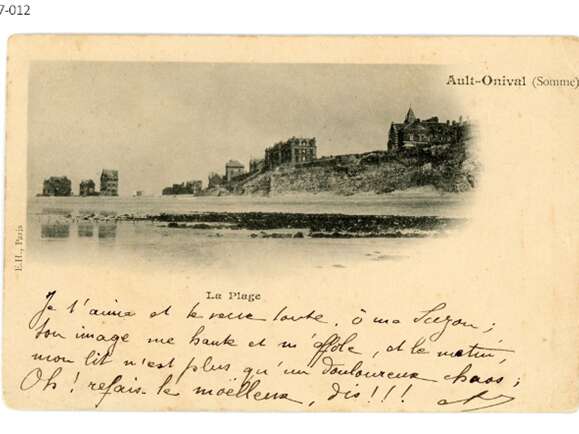 7-012
Ault-Onival (Somme)
E.H., Paris
La Plage
Je t'aime et te veux toute, ô ma Suzon ;
ton image me hante et m'affole, et le matin,
mon lit n'est plus qu'un douloureux chaos ;
Oh ! refais-le moëlleux, dis ! ! !